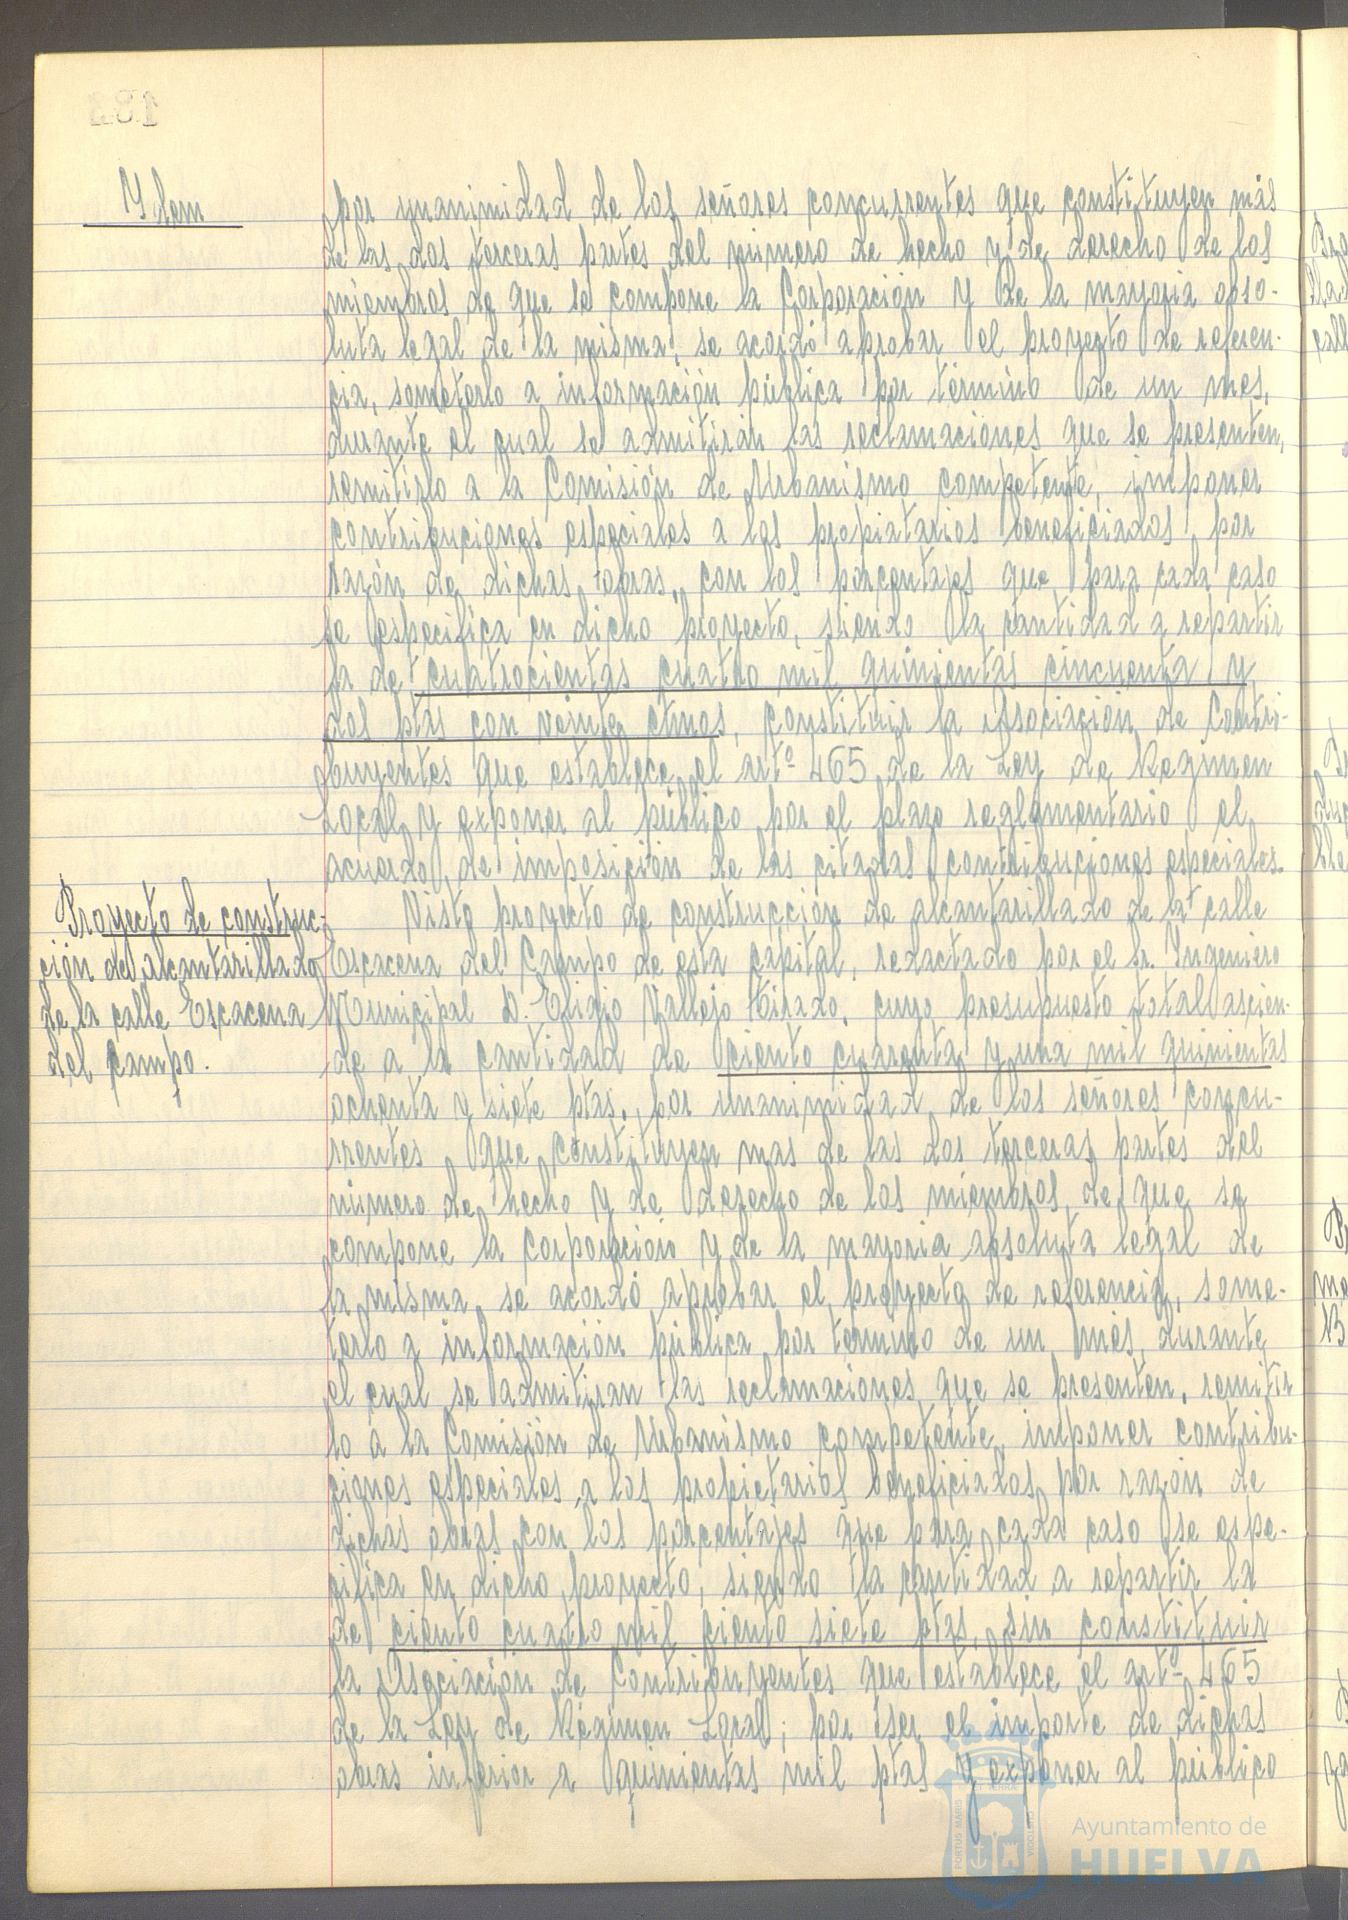 Ydem
por unanimidad de los señores concurrentes que constituyen más
de las dos terceras partes del número de hecho y de derecho de los
miembros de que se compone la Corporación y de la mayoria abso-
luta legal de la misma, se acordó aprobar el proyecto de referen-
cia, someterlo a información pública por término de un mes,
durante el cual se admitirán las reclamaciones que se presenten,
remitirlo a la Comisión de Urbanismo competente, imponer
contribuciones especiales a los propiatarios beneficiados por
razón de dichas obras, con los porcentajes que para cada caso
se especifica en dicho proyecto, siendo la cantidad a repartir
la de cuatrocientas cuatro mil quinientas cincuenta y
dos ptas con veinte ctmos, constituir la Asociación de Contri-
buyentes que establece el artº 465 de la Ley de Regimen
Local y exponer al público por el plazo reglamentario el
acuerdo de imposición de las citadas contribuciones especiales.
Proyecto de construc-
ción de alcantarillado
de la calle Escacena
del Campo.
Visto proyecto de construcción de alcantarillado de la calle
Escacena del Campo de esta capital, redactado por el Sr. Ingeniero
Municipal D. Eligio Vallejo Tirado, cuyo presupuesto total ascien-
de a la cantidad de ciento cuarenta y una mil quinientas
ochenta y siete ptas., por unanimidad de los señores concu-
rrentes que constituyen mas de las dos terceras partes del
número de hecho y de derecho de los miembros de que se
compone la Corporación y de la mayoria absoluta legal de
la misma, se acordó aprobar el proyecto de referencia, some-
terlo a información pública por término de un mes, durante
el cual se admitiran las reclamaciones que se presenten, remitir
lo a la Comisión de Urbanismo competente, imponer contribu-
ciones especiales a los propietarios beneficiados por razón de
dichas obras con los porcentajes que para cada caso se espe-
cifica en dicho proyecto, siendo la cantidad a repartir la
de ciento cuatro mil ciento siete ptas, sin constituir
la Asociación de Contribuyentes que establece el artº 465
de la Ley de Régimen Local; por ser el importe de dichas
obras inferior a quinientas mil ptas y exponer al público
Ayuntamiento de
HUELVA